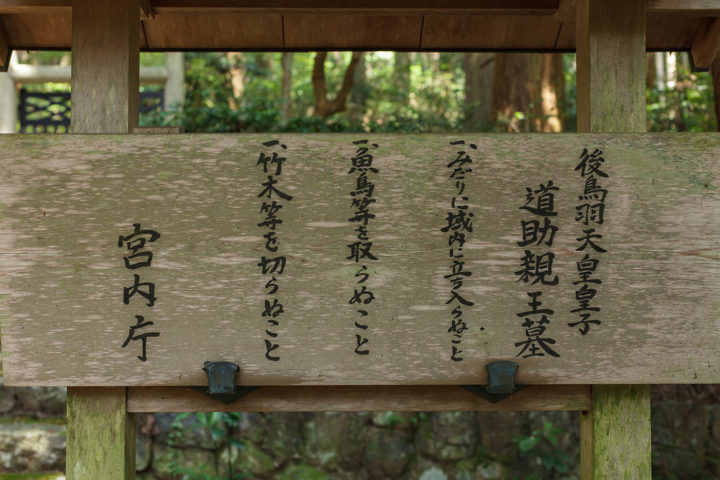 後鳥羽天皇皇子
道助親王墓
一、みだりに域内に立ち入らぬこと
一、魚鳥等を取らぬこと
一、竹木等を切らぬこと
宮内庁